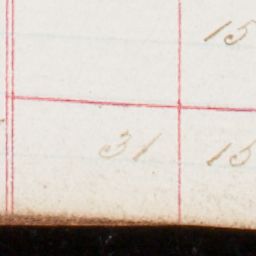 15
31 15